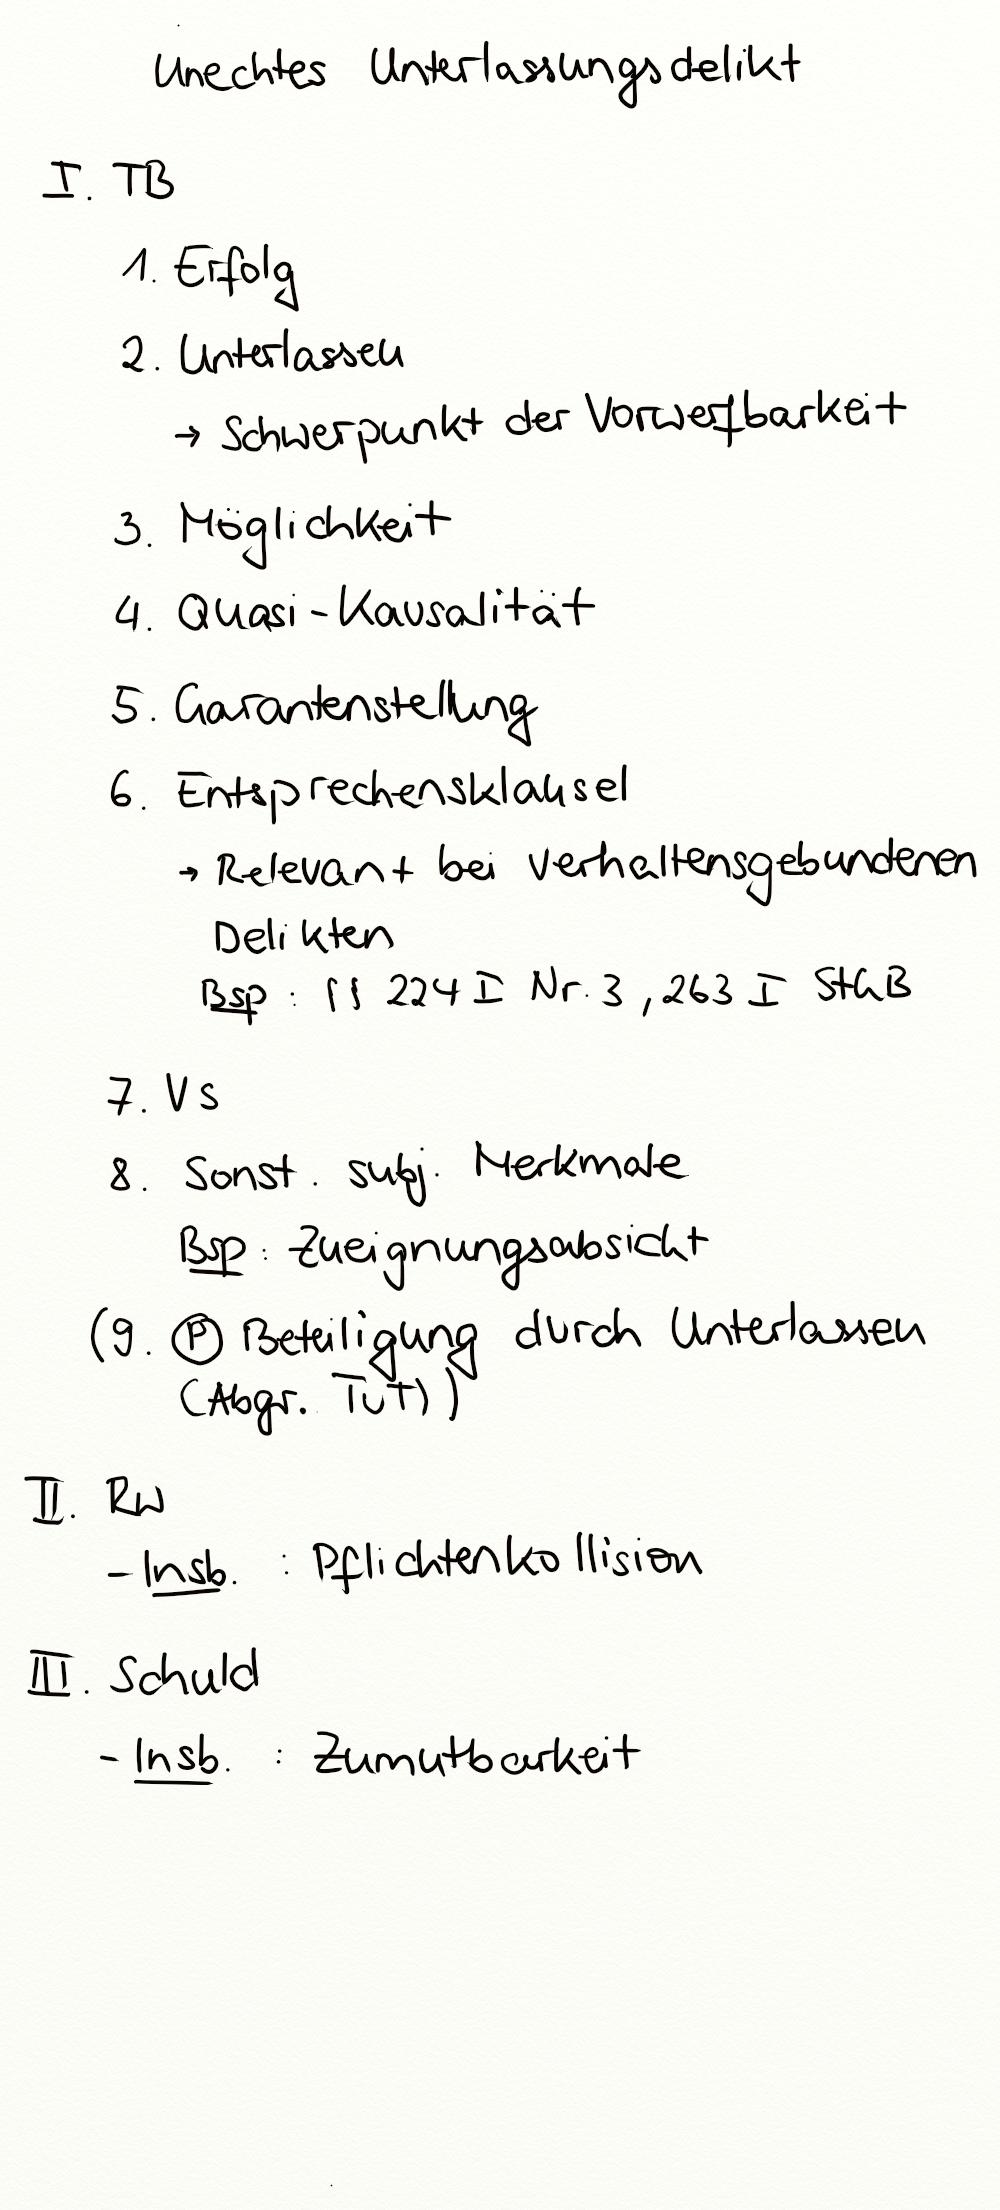 Unechtes Unterlassungsdelikt
I. TB
1. Erfolg
2. Unterlassen
→ Schwerpunkt der Vorwerfbarkeit
3. Möglichkeit
4. Quasi-Kausalität
5. Garantenstellung
6. Entsprechensklausel
→ Relevant bei verhaltensgebundenen
Delikten
Bsp: §§ 224 I Nr. 3, 263 I StGB
7. Vs
8. Sonst. subj. Merkmale
Bsp: Zueignungsabsicht
(9. Ⓟ Beteiligung durch Unterlassen
(Abgr. TuT))
II. RW
- Insb. : Pflichtenkollision
III. Schuld
- Insb. : Zumutbarkeit